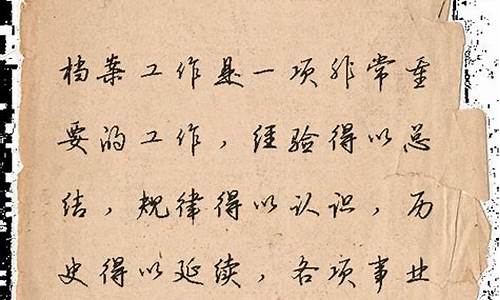 档案工作是一项非常重
要的工作，经验得以总
结，规律得以认识，历
史得以延续，各项事业